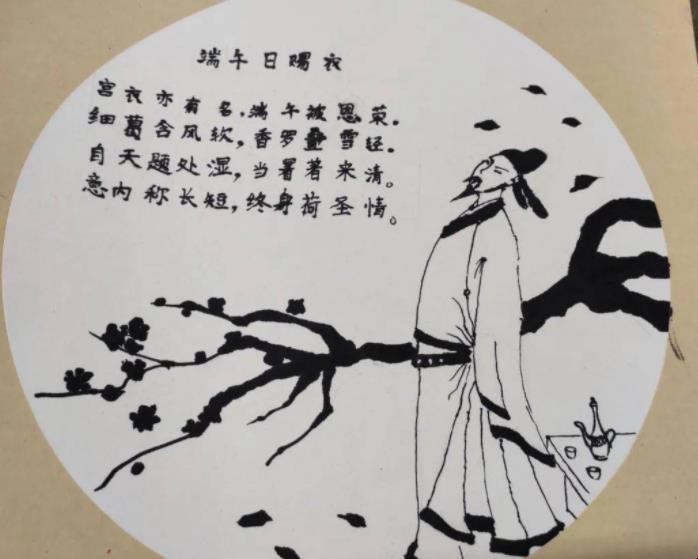 端午日赐衣
宫衣亦有名，端午被恩荣。
细葛含风软，香罗叠雪轻。
自天题处湿，当暑著来清。
意内称长短，终身荷圣情。